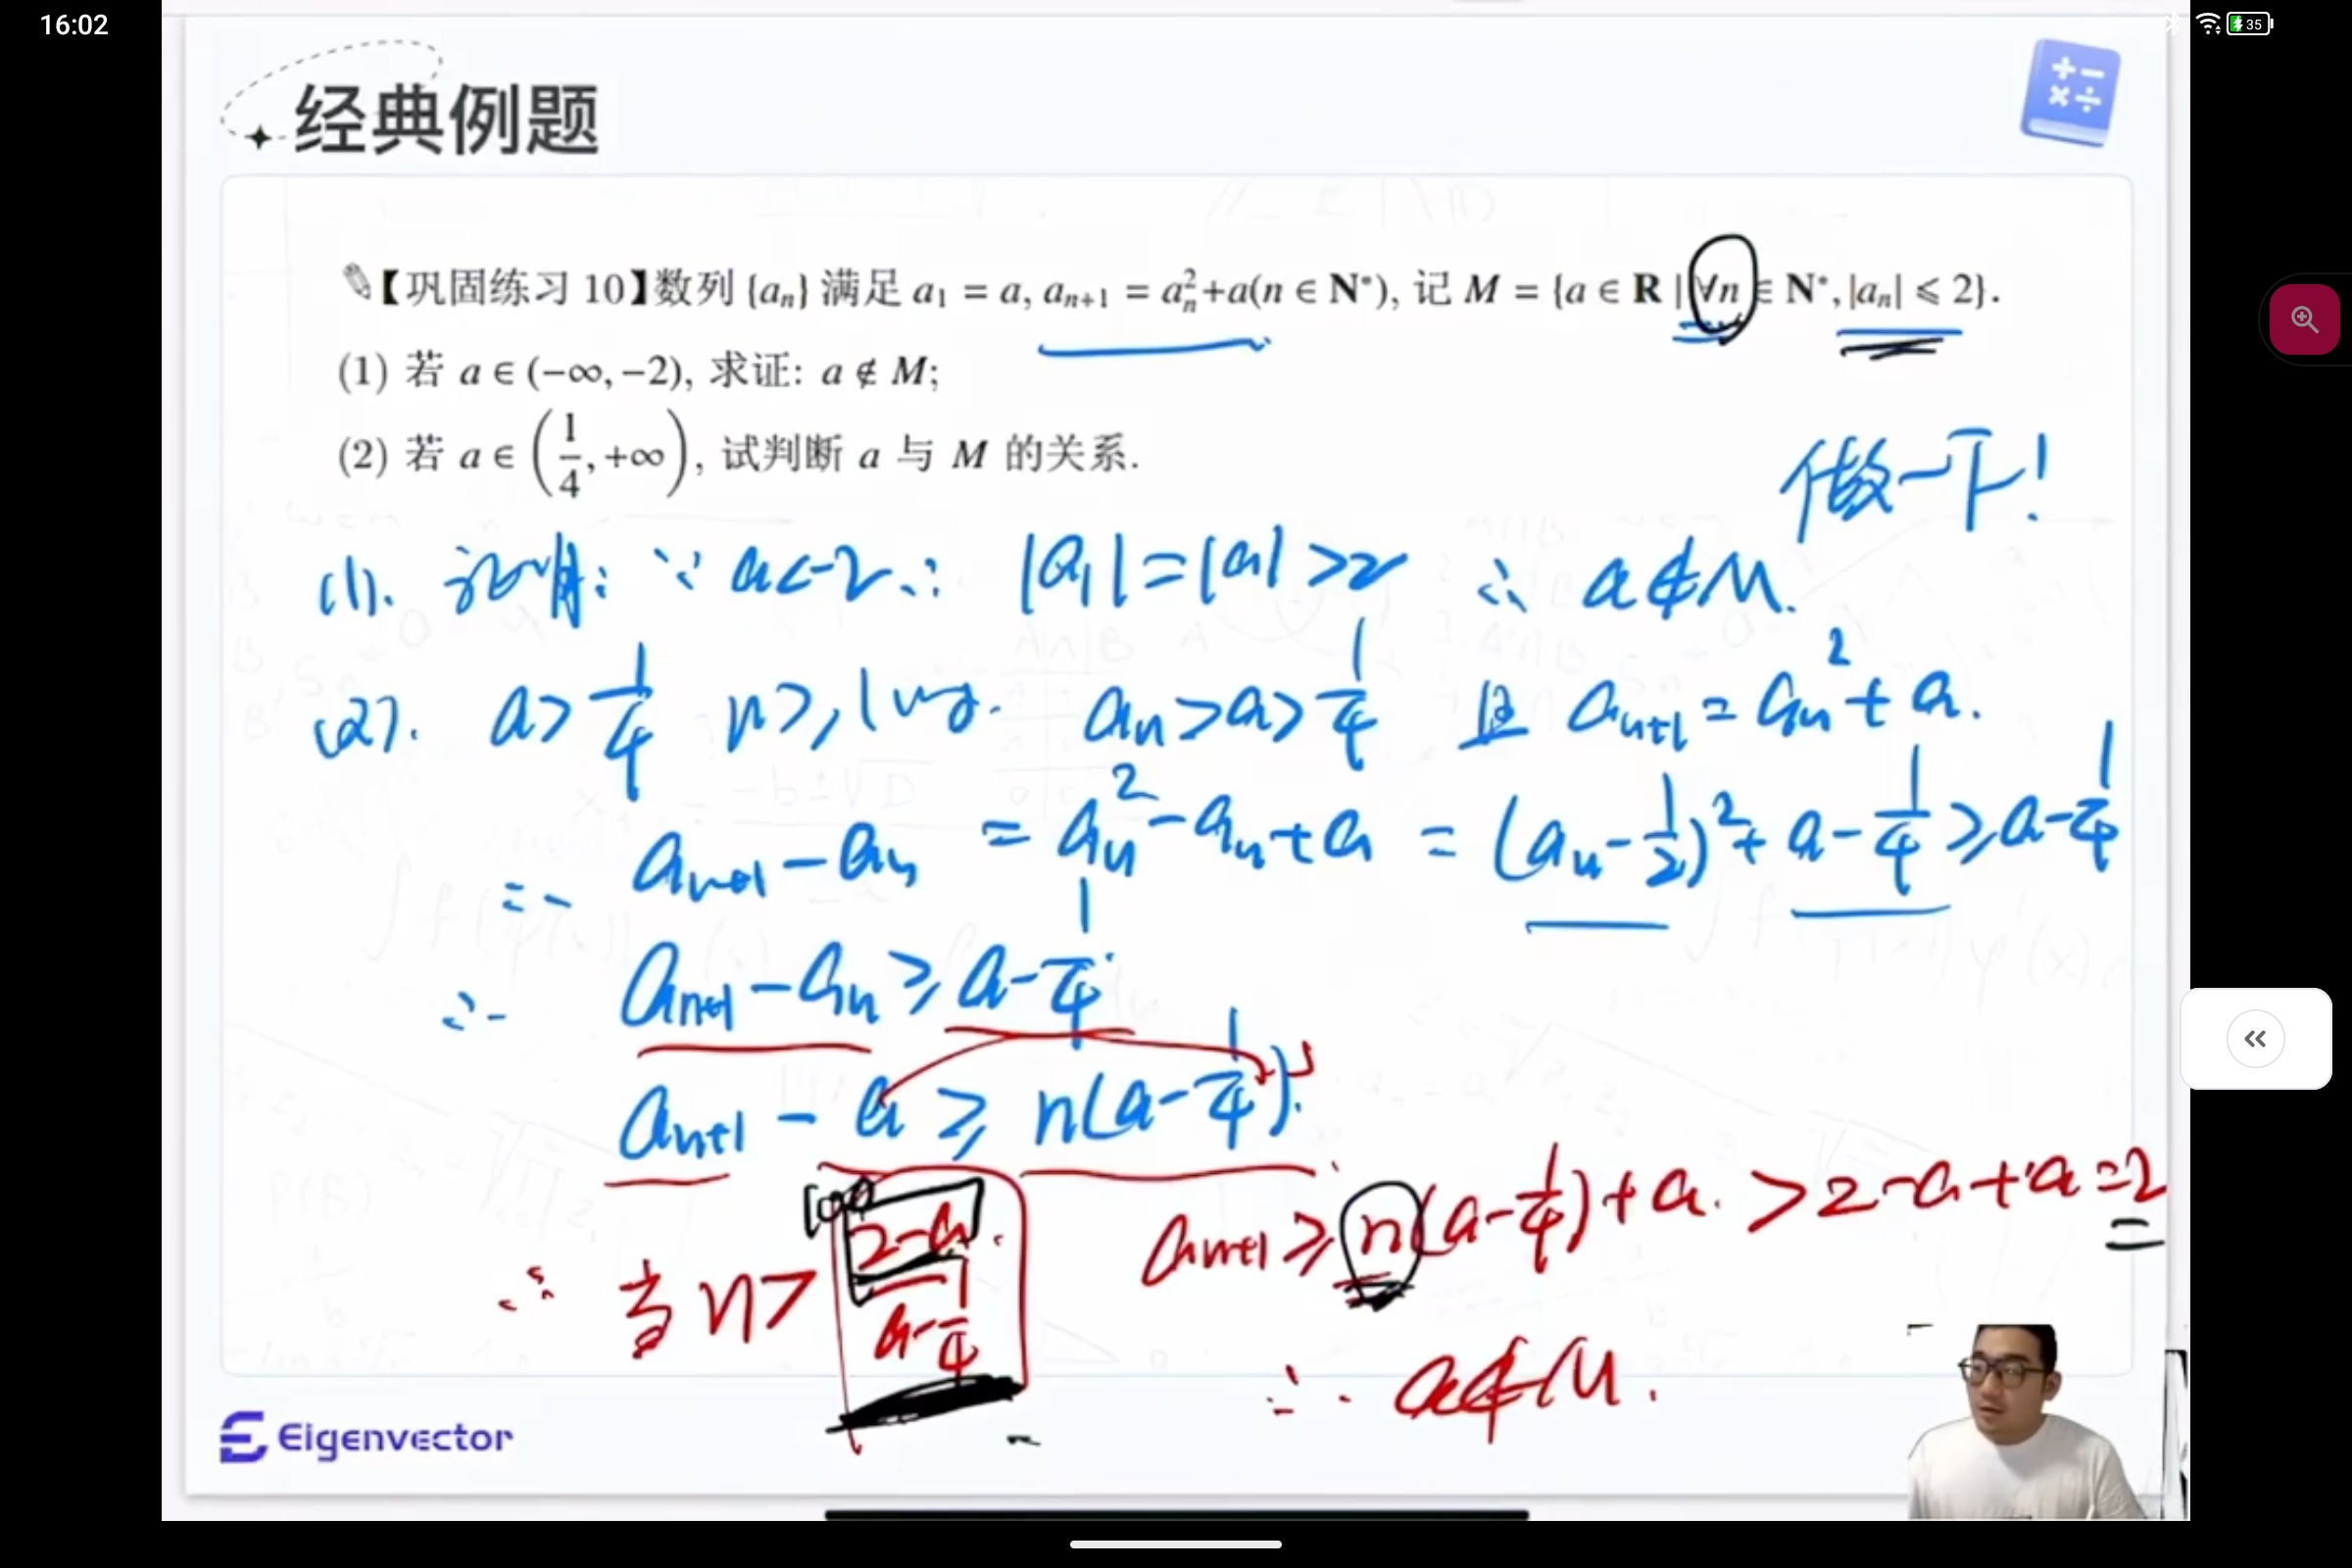 16:02
35
经典例题
【巩固练习 10】数列 {aₙ} 满足 a₁ = a, aₙ₊₁ = aₙ²+a(n ∈ N*), 记 M = {a ∈ R | ∀n ∈ N*, |aₙ| ⩽ 2}.
(1) 若 a ∈ (−∞, −2), 求证: a ∉ M;
(2) 若 a ∈ (1/4, +∞), 试判断 a 与 M 的关系.
做一下!
(1). 证明: ∵ a<-2 ∴ |a₁|=|a|>2 ∴ a∉M.
(2). a>1/4 n≥1时. aₙ>a>1/4 且 aₙ₊₁=aₙ²+a.
∴ aₙ₊₁-aₙ = aₙ²-aₙ+a = (aₙ-1/2)²+a-1/4≥a-1/4
∴ aₙ₊₁-aₙ≥a-1/4.
aₙ₊₁-a≥n(a-1/4).
∴ 当 n>(2-a)/(a-1/4) aₙ₊₁≥n(a-1/4)+a.>2-a+a=2
∴ a∉M.
Eigenvector